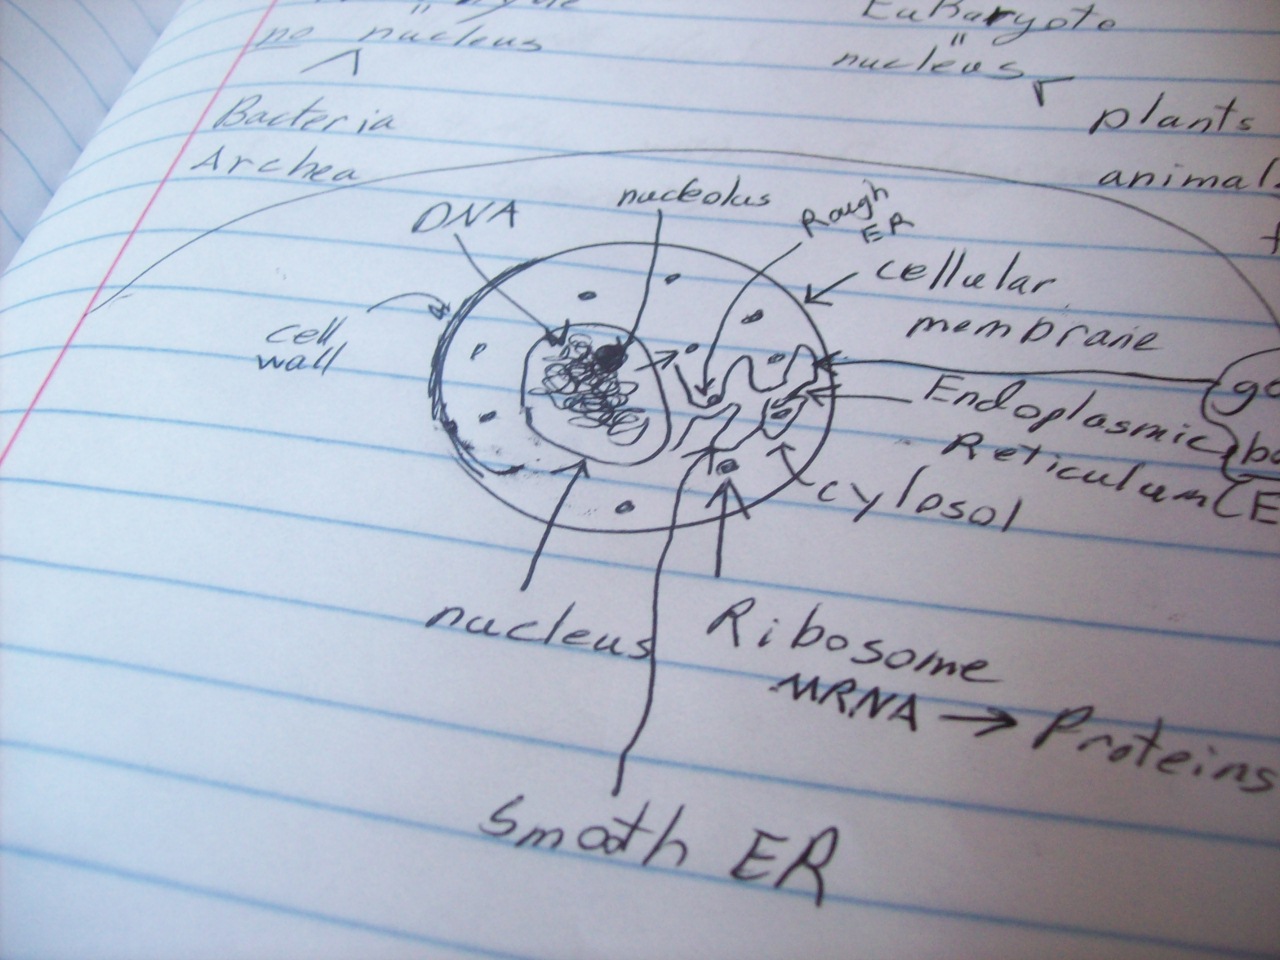 no nucleus
Eukaryote
nucleus
Bacteria
Archea
plants
animals
DNA
nucleolus
Rough
ER
cellular
membrane
cell
wall
go
Endoplasmic
bo
Reticulum (E
cytosol
nucleus
Ribosome
MRNA → Proteins
Smooth ER